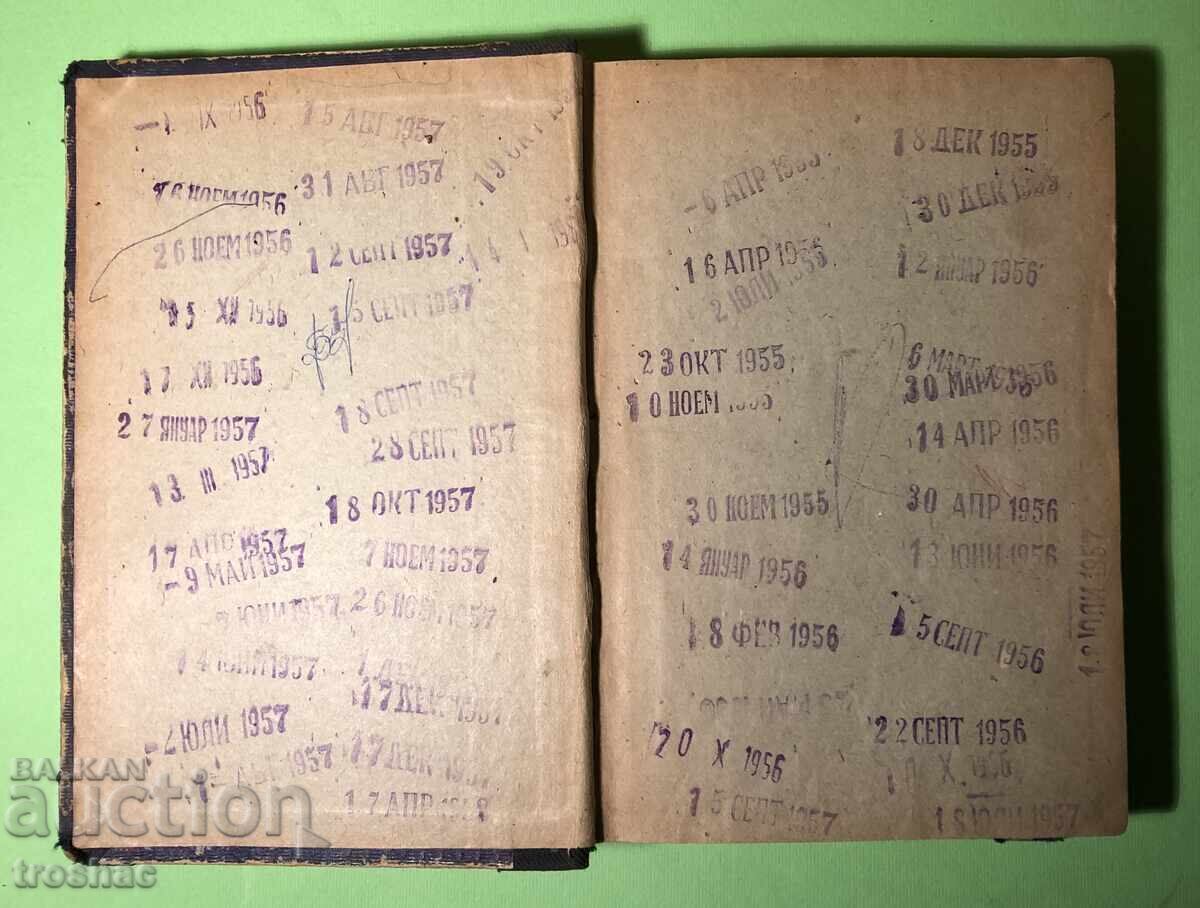 1 IX 1956
16 НОЕМ 1956
26 НОЕМ 1956
XII 1956
17 XII 1956
27 ЯНУАР 1957
13. III. 1957
17 АПР 1957
- 9 МАЙ 1957
ЮНИ 1957
14 ЮНИ 1957
ЮЛИ 1957
АВГ 1957
15 АВГ 1957
31 АВГ 1957
12 СЕПТ 1957
15 СЕПТ 1957
18 СЕПТ 1957
28 СЕПТ 1957
18 ОКТ 1957
7 НОЕМ 1957
26 НОЕМ 1957
17 ДЕК 1957
17 ДЕК
17 АПР 1958
19 ОКТ
- 6 АПР 1955
16 АПР 1955
2 ЮЛИ 1955
23 ОКТ 1955
10 НОЕМ 1955
30 НОЕМ 1955
14 ЯНУАР 1956
18 ФЕВ 1956
20 X 1956
15 СЕПТ 1957
18 ДЕК 1955
30 ДЕК 1955
12 ЯНУАР 1956
6 МАРТ 1956
30 МАРТ
14 АПР 1956
30 АПР 1956
13 ЮНИ 1956
15 СЕПТ 1956
22 СЕПТ 1956
X. 1956
18 ЮЛИ 1957
ЮЛИ 1957
BALKAN
auction
trosnac